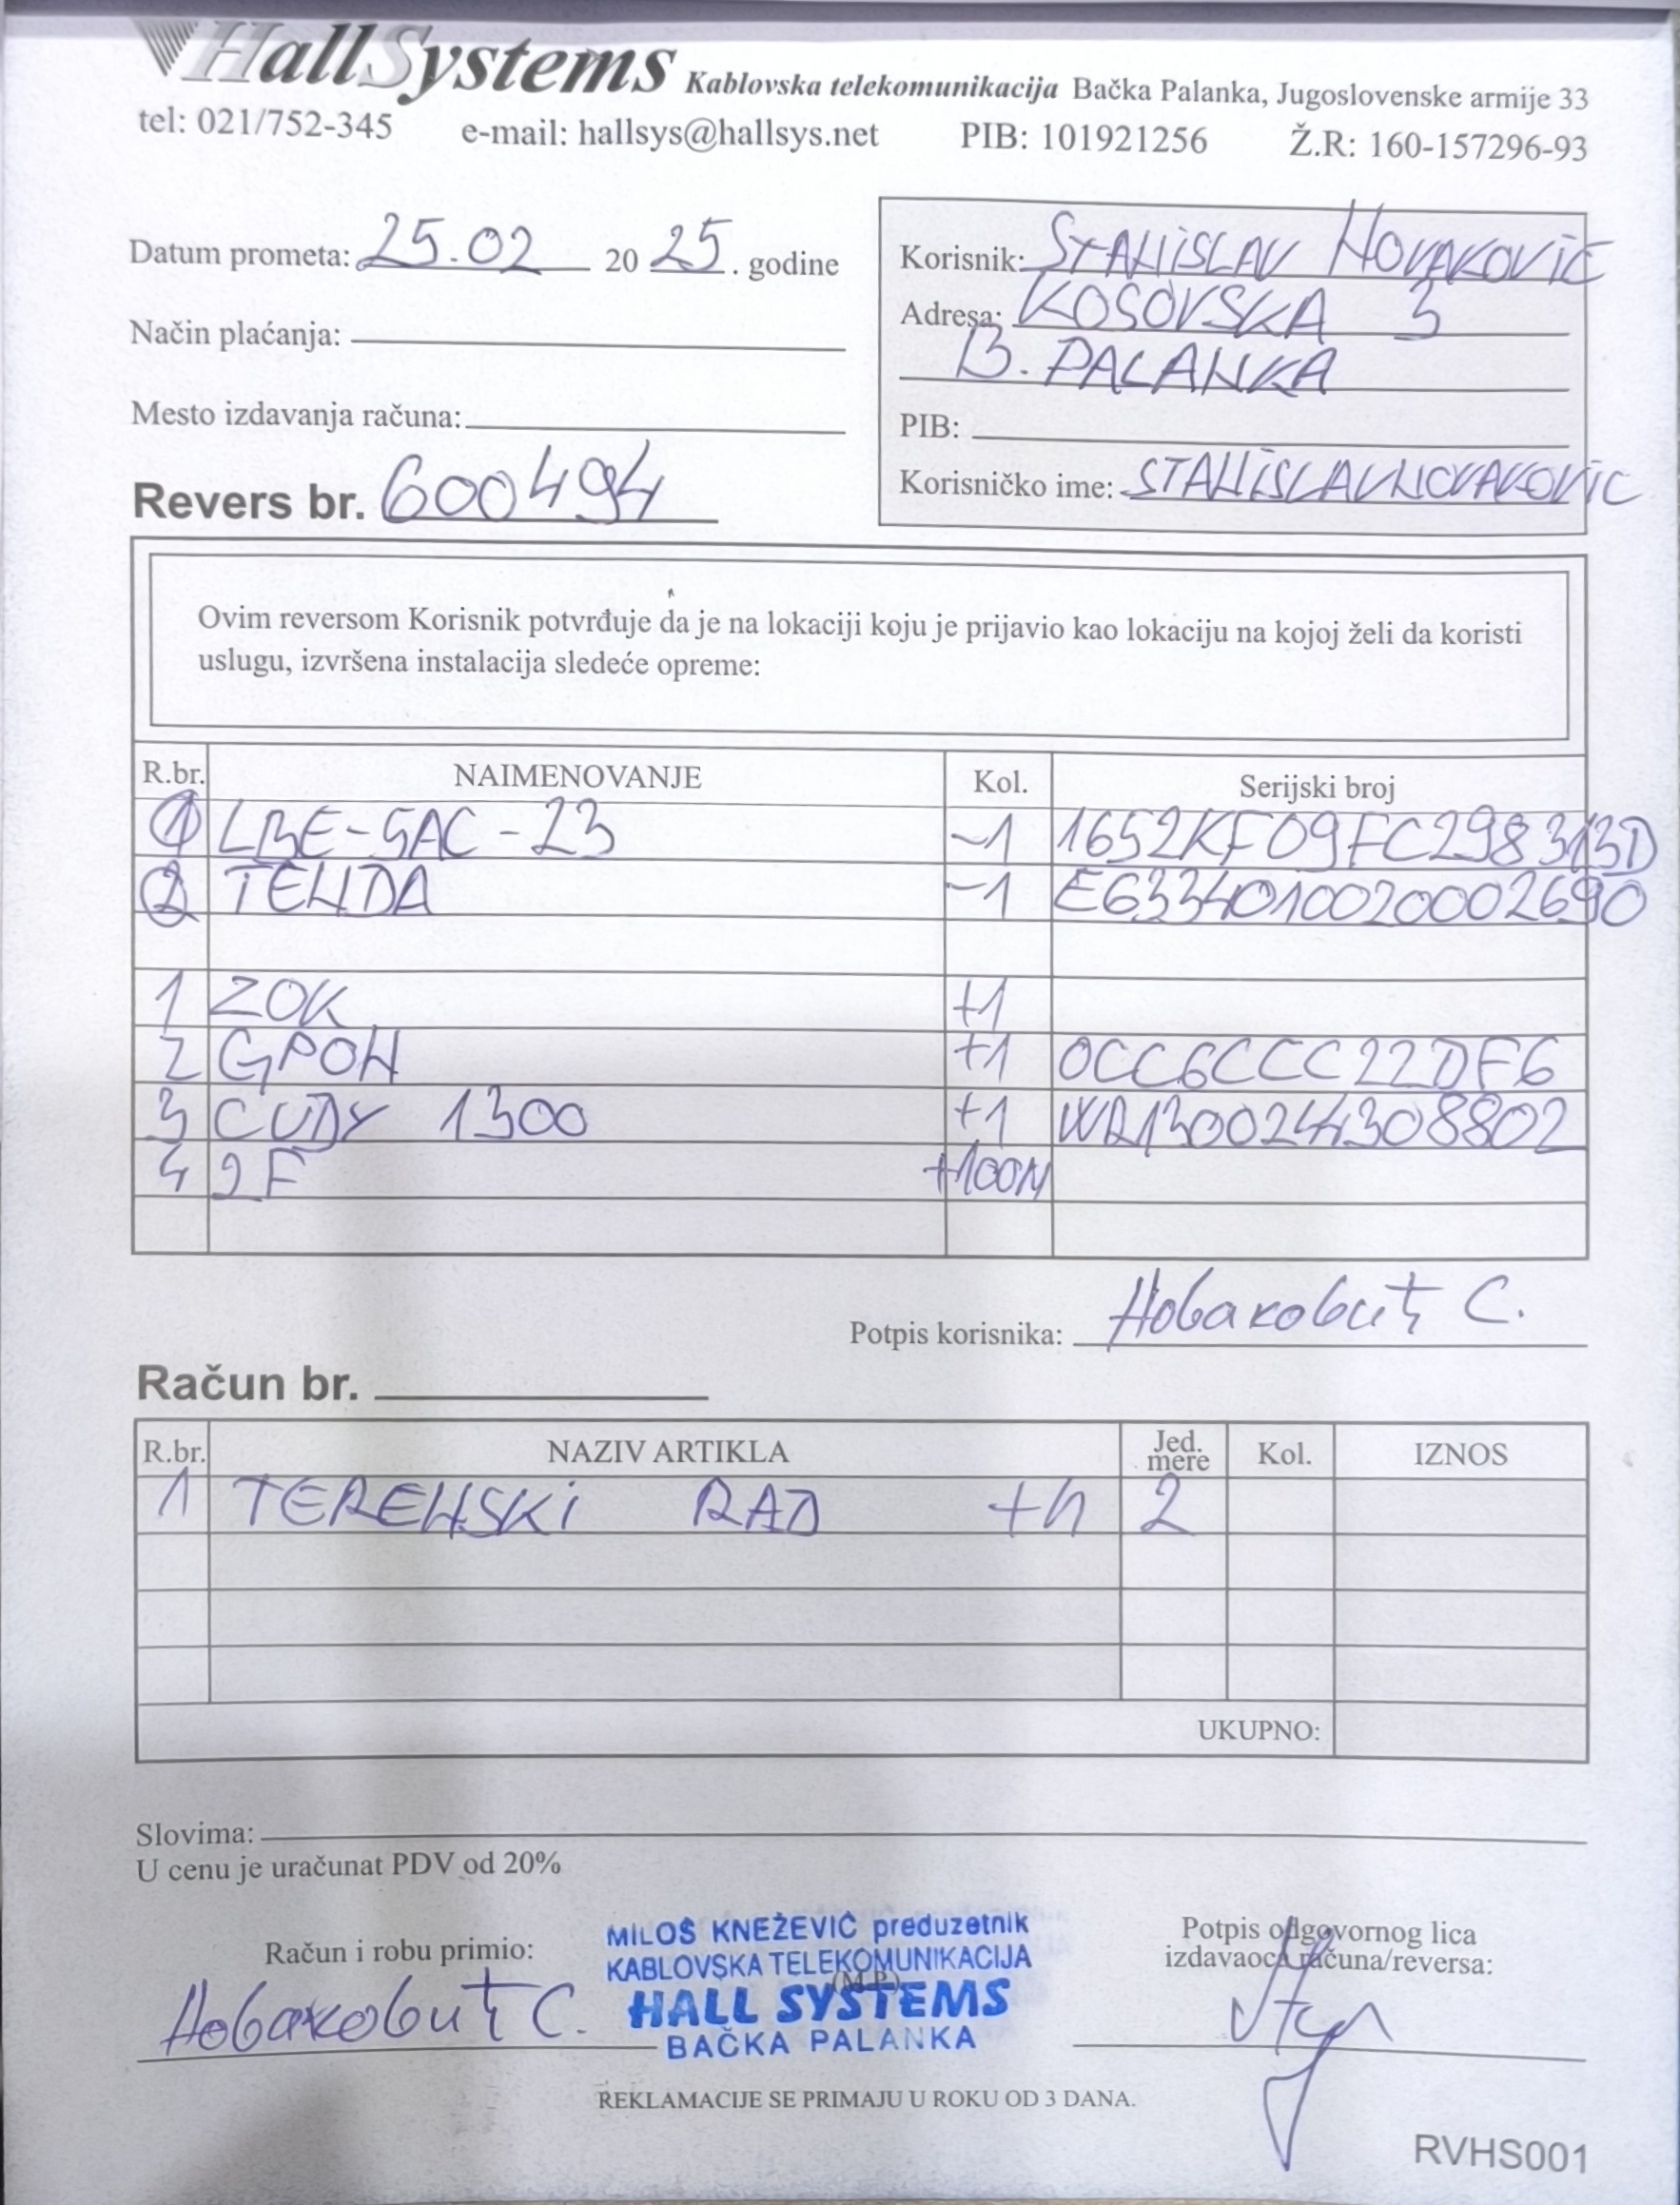 HallSystems Kablovska telekomunikacija Bačka Palanka, Jugoslovenske armije 33
tel: 021/752-345 e-mail: hallsys@hallsys.net PIB: 101921256 Ž.R: 160-157296-93
Datum prometa: 25.02 2025. godine
Način plaćanja:
Mesto izdavanja računa:
Revers br. 600494
Korisnik: STANISLAV NOVAKOVIĆ
Adresa: KOSOVSKA 3
B. PALANKA
PIB:
Korisničko ime: STANISLAVNOVAKOVIC
Ovim reversom Korisnik potvrđuje da je na lokaciji koju je prijavio kao lokaciju na kojoj želi da koristi
uslugu, izvršena instalacija sledeće opreme:
R.br. NAIMENOVANJE Kol. Serijski broj
1 LBE-5AC-23 -1
2 TENDA -1 E6334010020002690
1 ZOK +1
2 GPON +1 0CC6CCC22DF6
3 CUDY 1300 +1 WR1300244308802
4 2F +100M
Potpis korisnika: Новаковић С.
Račun br.
R.br. NAZIV ARTIKLA Jed. mere Kol. IZNOS
1 TERENSKI RAD +h 2
UKUPNO:
Slovima:
U cenu je uračunat PDV od 20%
Račun i robu primio:
Новаковић С.
MILOŠ KNEŽEVIĆ preduzetnik
KABLOVSKA TELEKOMUNIKACIJA
(M.P.)
HALL SYSTEMS
BAČKA PALANKA
Potpis odgovornog lica
izdavaoca računa/reversa:
REKLAMACIJE SE PRIMAJU U ROKU OD 3 DANA.
RVHS001